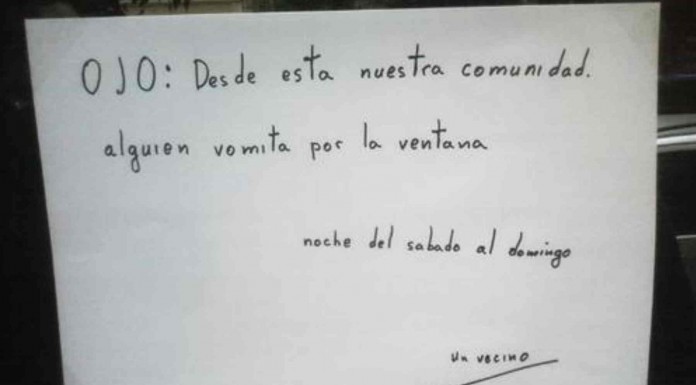 OJO: Desde esta nuestra comunidad.
alguien vomita por la ventana
noche del sabado al domingo
un vecino